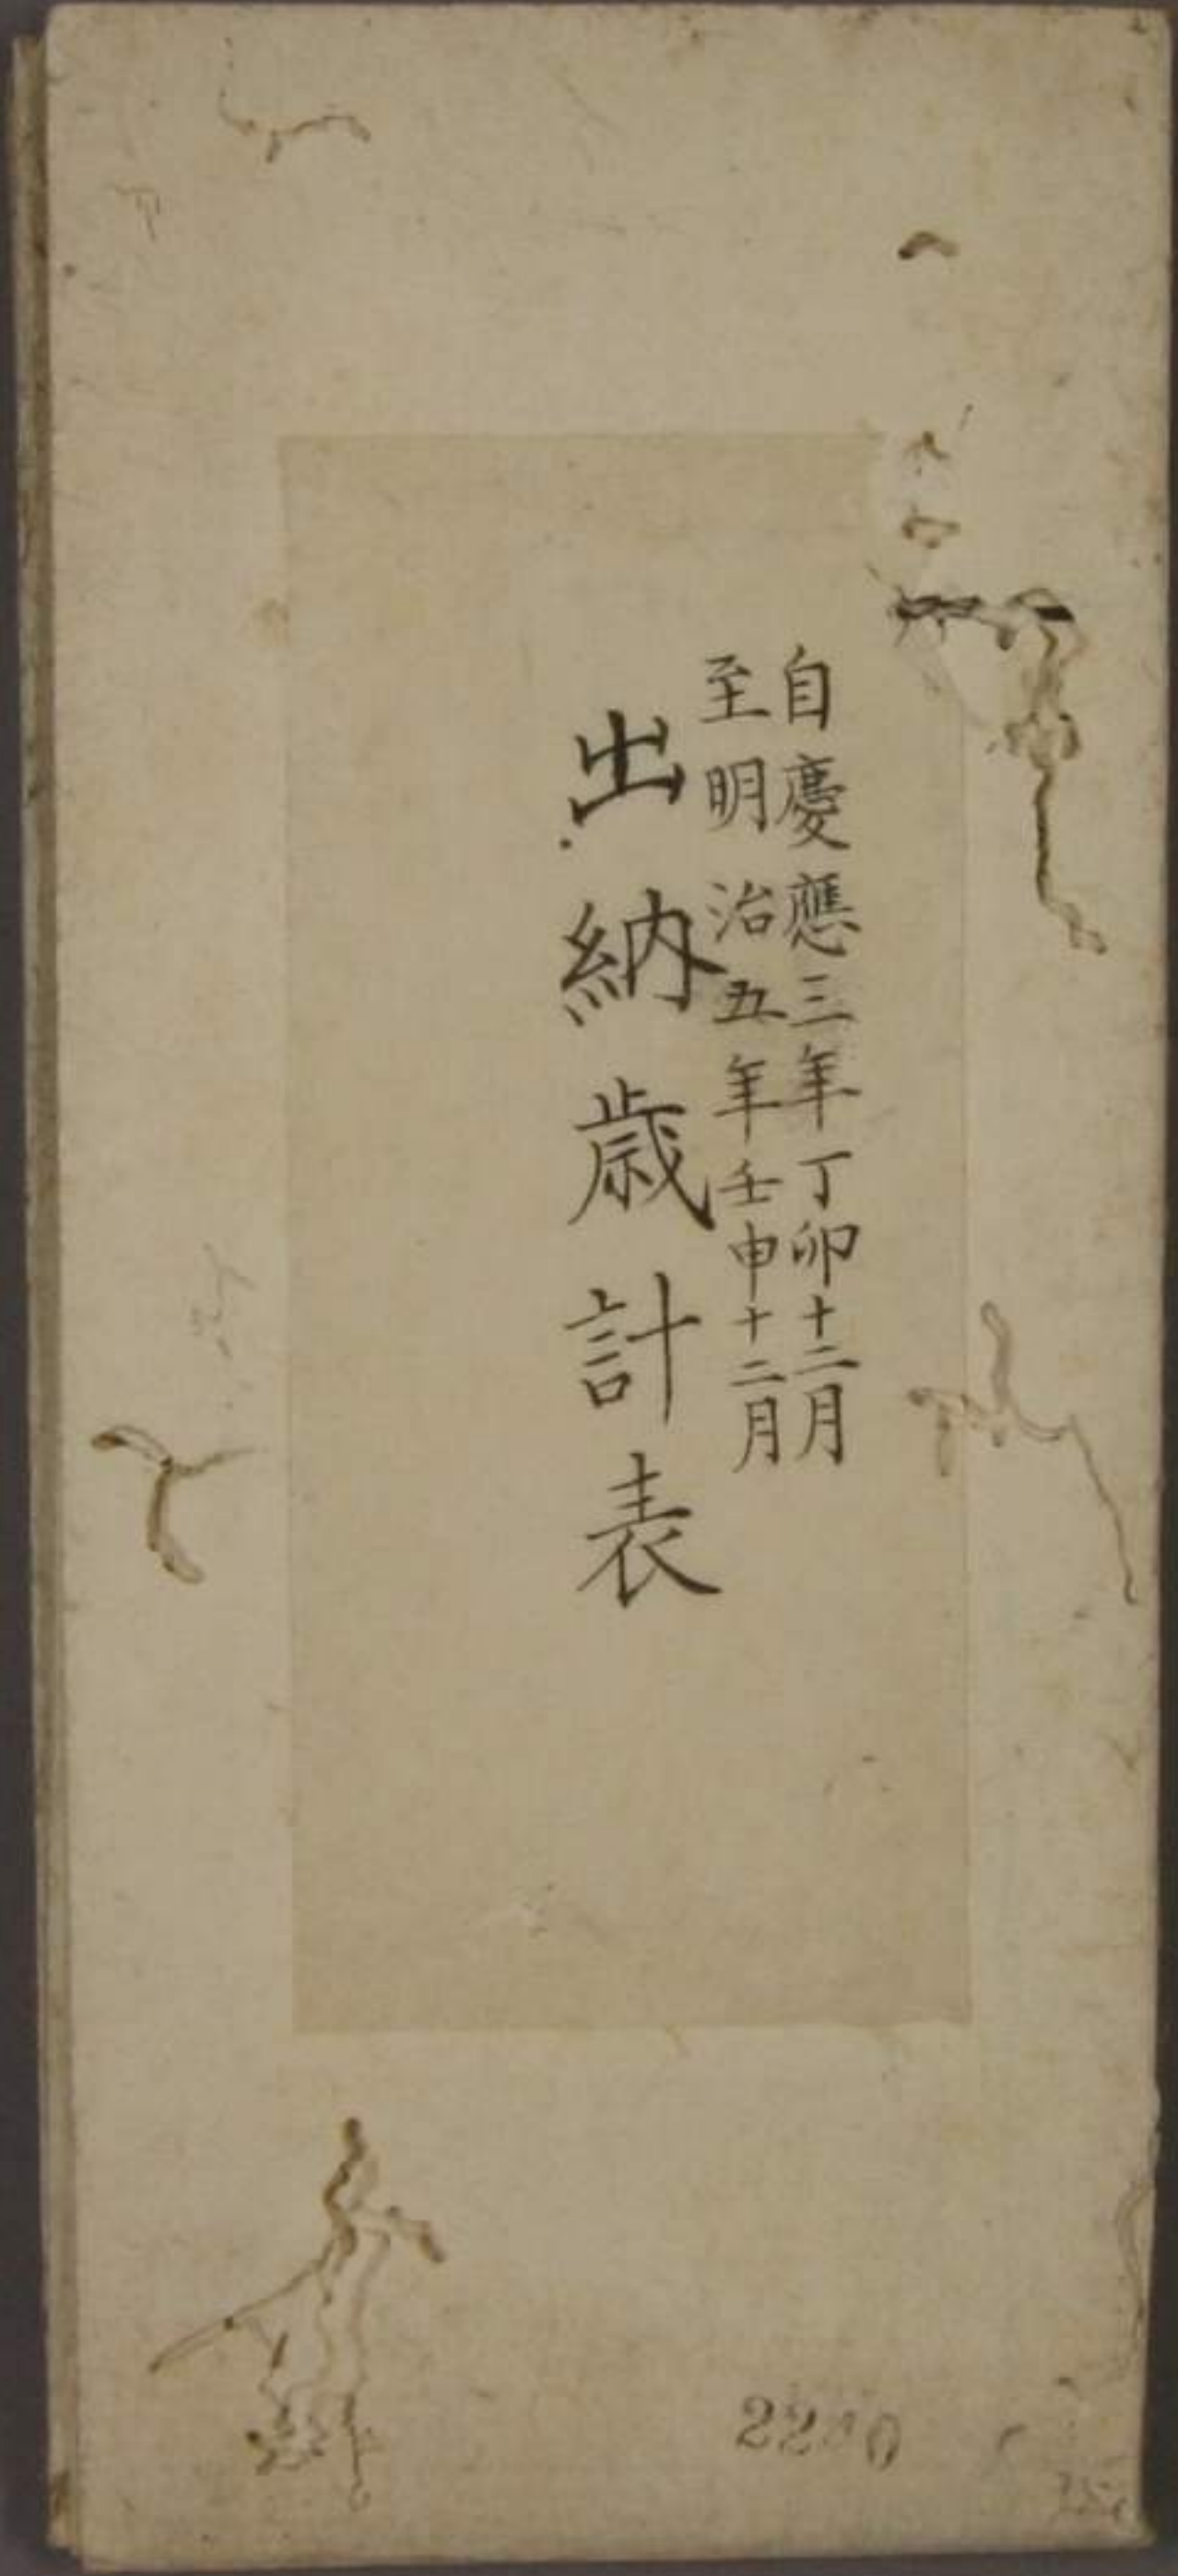 自慶應三年丁卯十二月
至明治五年壬申十二月
出納歳計表